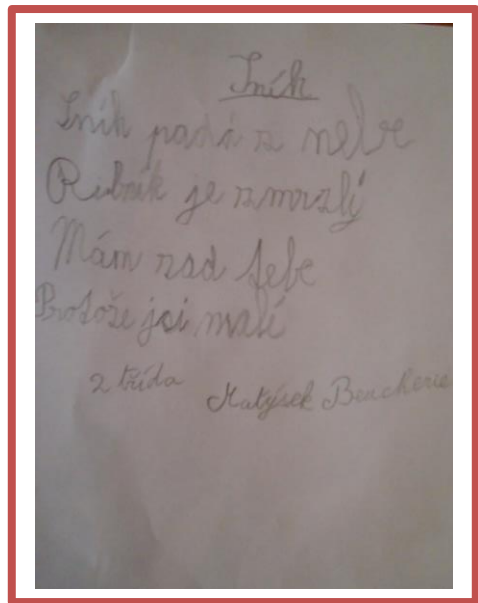 Sníh
Sníh padá z nebe
Rybník je zmrzlý
Mám rad tebe
Protože jsi malí
2 třída Matýsek Beucherie